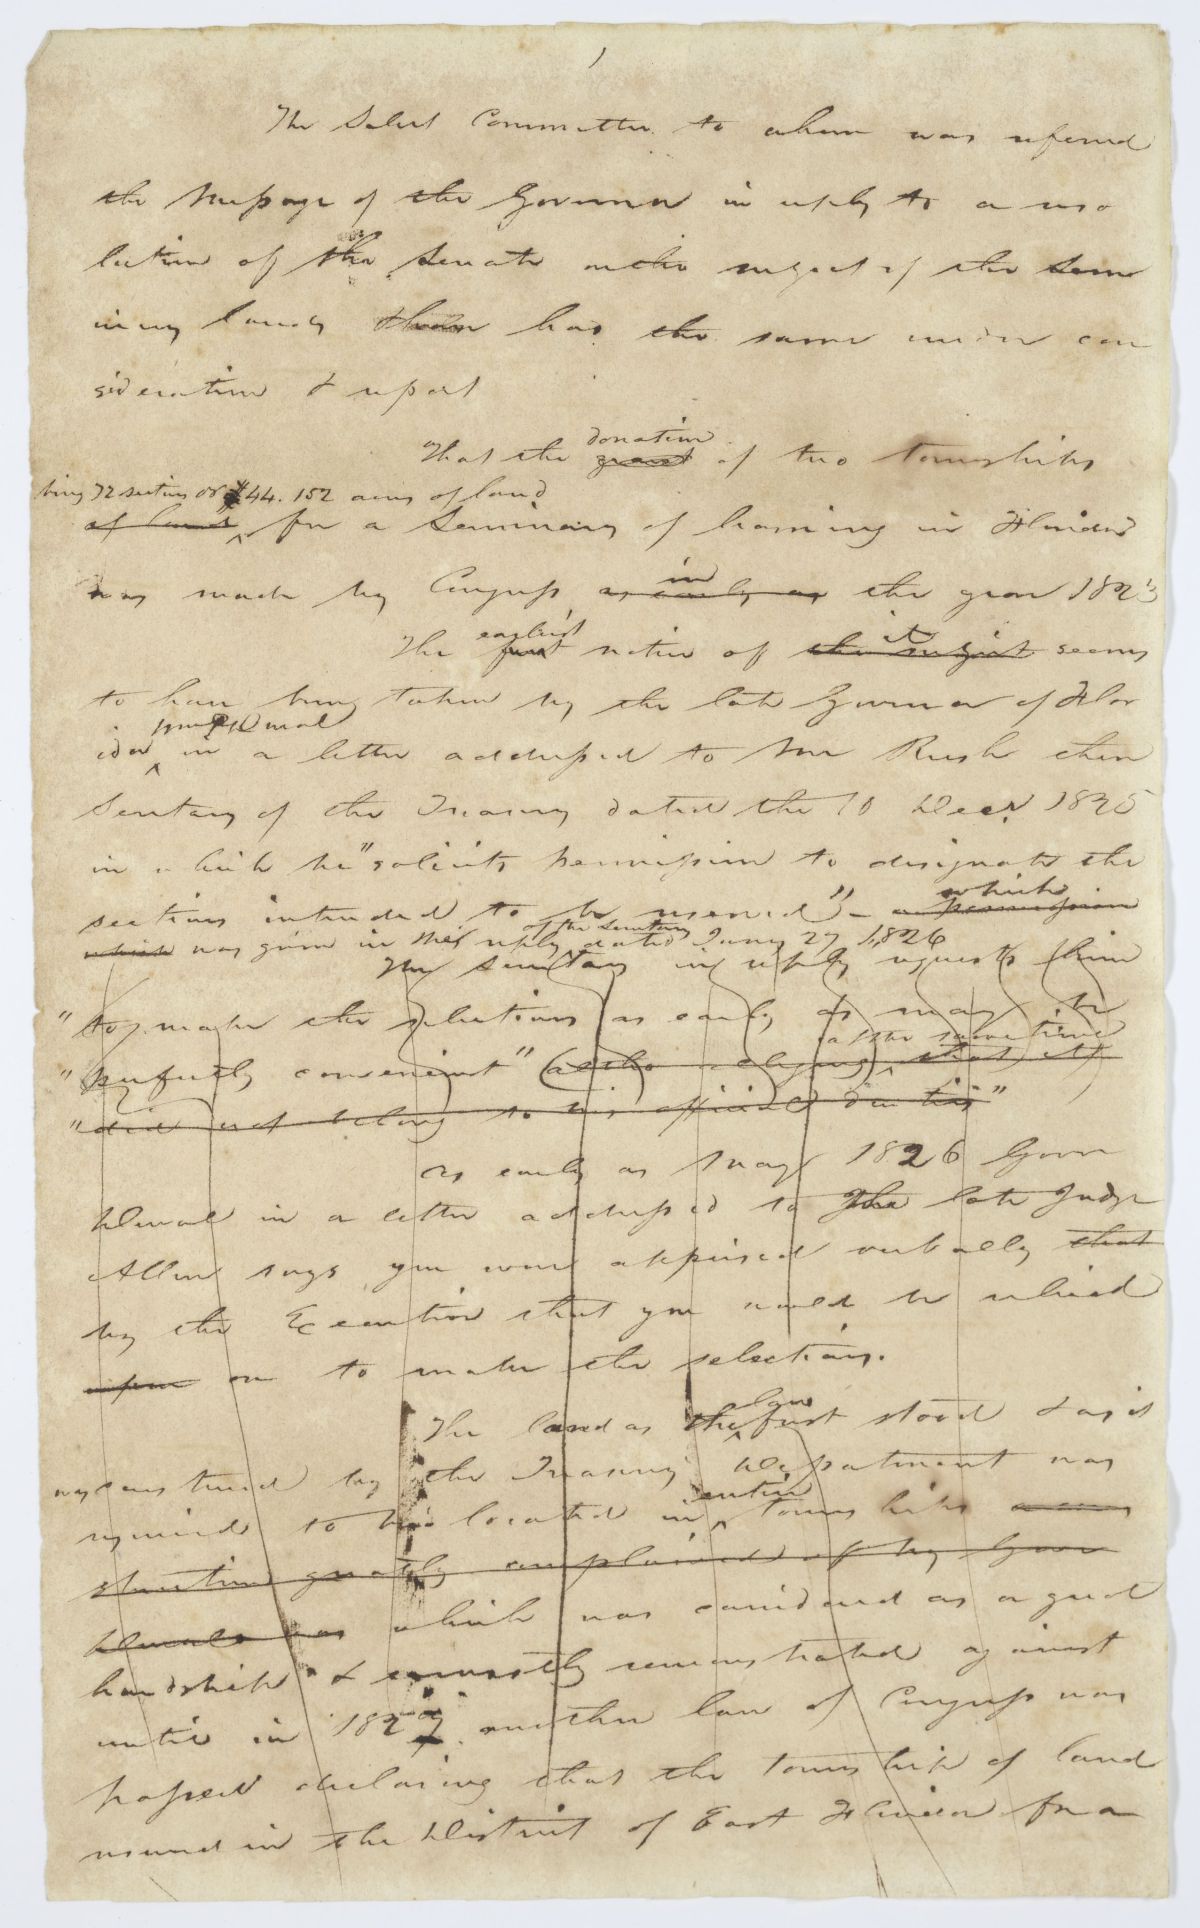 1
The Select Committee to whom was referred
the Message of the Governor in reply to a reso
lution of the Senate on the subject of the Sem
inary lands has the same under con
sideration & report
donation
That the grant of two townships
being 72 sections or 44.152 acres of land
of land for a Seminary of learning in Florida
in
was made by Congress as early as the year 1823
earliest it
The first notice of the subject seems
to have been taken by the late Governor of Flor
Duval
ida in a letter addressed to Mr Rush then
Secretary of the Treasury dated the 10 Decr 1825
in which he "solicits permission to designate the
which
sections intended to be reserved" - a permission
of the Secretary
which was given in the reply dated Jany 27 1826
The Secretary in reply requests him
"to make the selections as early as may be
at the same time
"perfectly convenient" (altho alleging that it
"did not belong to his official duties"
As early as May 1826 Govr
Duval in a letter addressed to the late Judge
Allen says you were apprised verbally that
by the Executive that you would be relied
upon on to make the selections.
law
The land as the first stood & as it
was construed by the Treasury Department was
entire
required to be located in townships a con
struction greatly complained of by Govr
Duval & was which was considered as a great
hardship & earnestly remonstrated against
until in 1827 another law of Congress was
passed declaring that the township of land
reserved in the District of East Florida for a